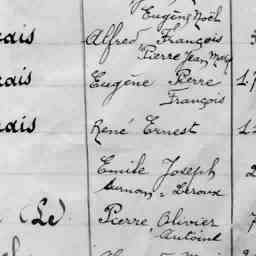 Eugène Noël
dais Alfred François
Pierre Jean Marie
dais Eugène Pierre 17
François
dais René Ernest
Emile Joseph 2
surnom Leroux
(Le) Pierre Olivier 7
Antoine